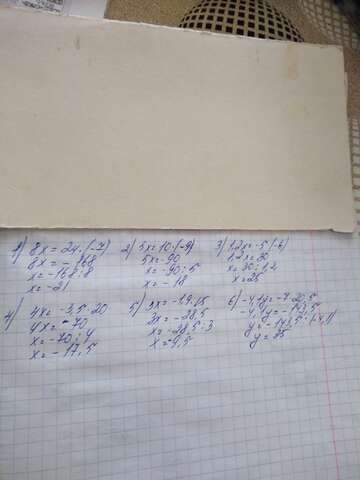 1) 8x = 24·(-7)
8x = -168
x = -168:8
x = -21
2) 5x = 10·(-9)
5x = -90
x = -90:5
x = -18
3) 1,2x = -5·(-6)
1,2x = 30
x = 30:1,2
x = 25
4) 4x = -3,5·20
4x = -70
x = -70:4
x = -17,5
5) 3x = -19·1,5
3x = -28,5
x = -28,5:3
x = 9,5
6) -4,1y = -7·20,5
-4,1y = -143,5
y = -143,5:(-4,1)
y = 35